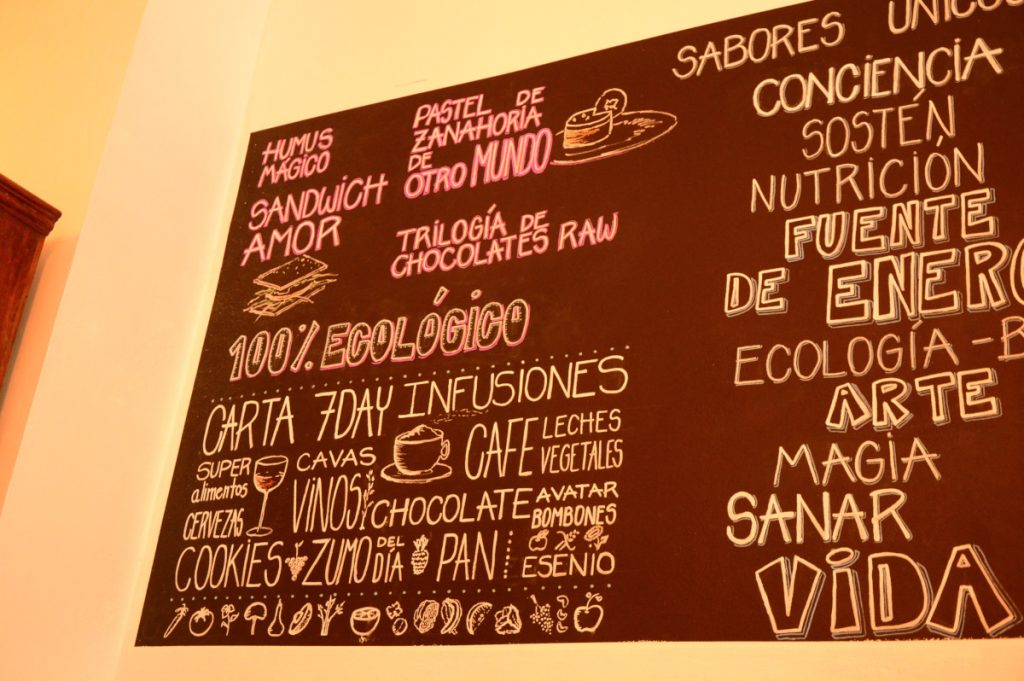 HUMUS
MÁGICO
SANDWICH
AMOR
PASTEL DE
ZANAHORIA
DE
OTRO MUNDO
TRILOGÍA DE
CHOCOLATES RAW
100% ECOLÓGICO
CARTA 7DAY INFUSIONES
SUPER
alimentos
CERVEZAS
CAVAS
VINOS
CAFE
LECHES
VEGETALES
CHOCOLATE
AVATAR
BOMBONES
COOKIES
ZUMO DEL
DÍA
PAN
ESENIO
SABORES
CONCIENCIA
SOSTÉN
NUTRICIÓN
FUENTE
DE
ECOLOGÍA -
ARTE
MAGIA
SANAR
VIDA